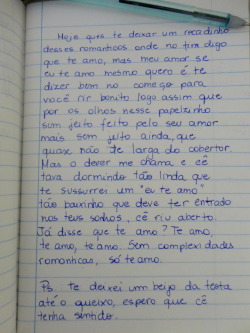 Hoje quis te deixar um recadinho
desses romanticos onde no fim digo
que te amo, mas meu amor se
eu te amo mesmo quero é te
dizer bem no começo para
você rir bonito logo assim que
por os olhos nesse papelzinho
sem jeito feito pelo seu amor
mais sem jeito ainda, que
quase não te larga do cobertor.
Mas o dever me chama, e cê
tava dormindo tão linda, que
te sussurrei um "eu te amo"
tão baixinho que deve ter entrado
nos teus sonhos, cê riu aberto.
Já disse que te amo? Te amo,
te amo, te amo. Sem complexidades
romanticas, só te amo.
Ps. Te deixei um beijo da testa
até o queixo, espero que cê
tenha sentido.